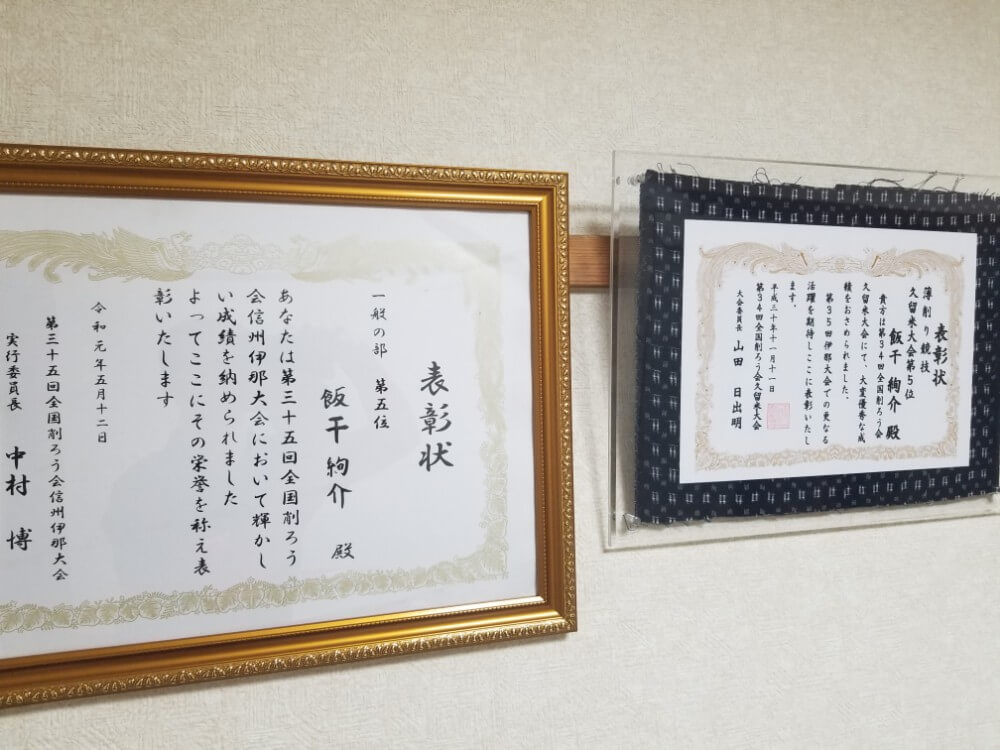 表彰状
一般の部　第五位
飯干 絢介　殿
あなたは第三十五回全国削ろう
会信州伊那大会において輝かし
い成績を納められました
よってここにその栄誉を称え表
彰いたします
令和元年五月十二日
第三十五回全国削ろう会信州伊那大会
実行委員長　中村　博
表彰状
薄削り競技
久留米大会第5位
飯干 絢介 殿
貴方は第34回全国削ろう会
久留米大会にて、大変優秀な成
績をおさめられました、
第35回伊那大会での更なる
活躍を期待しここに表彰いたし
ます。
平成三十年十一月十一日
第34回全国削ろう会久留米大会
大会委員長　山田　日出明